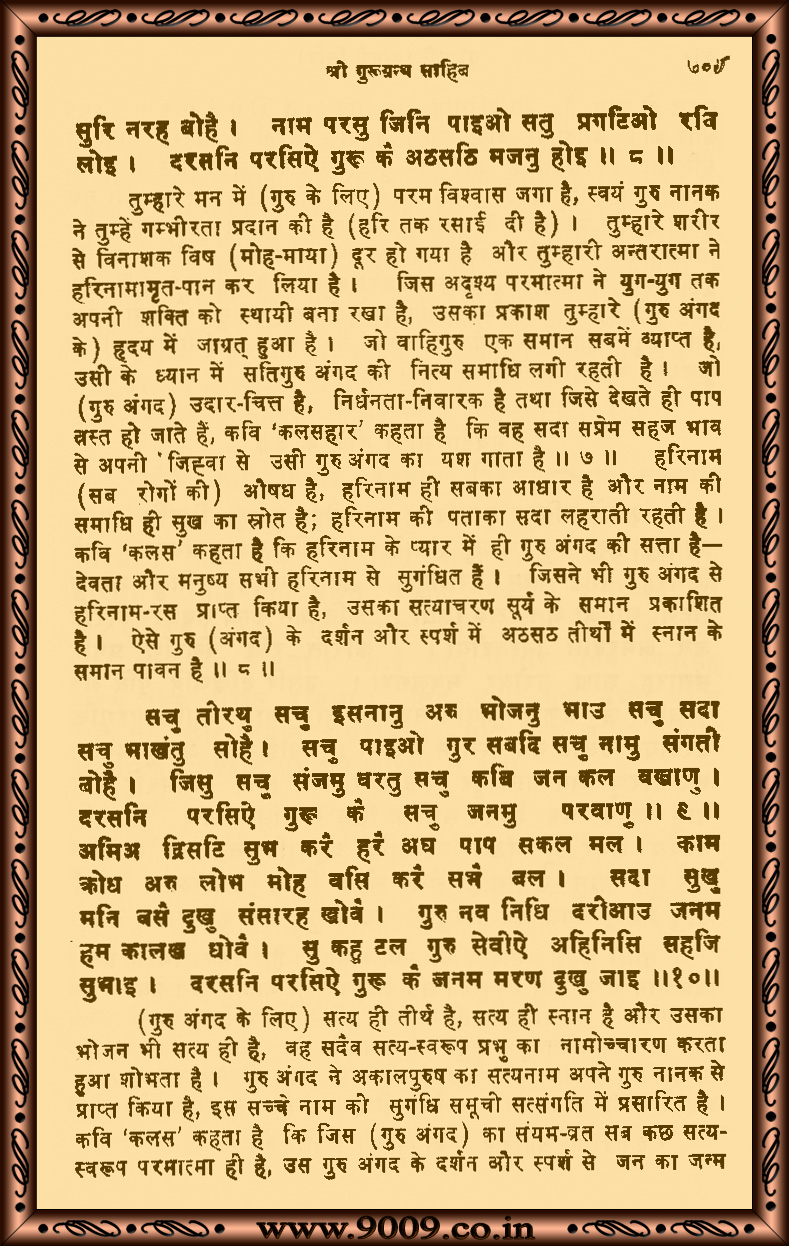 श्री गुरूग्रन्थ साहिब ७०५
सुरि नरह बोहै । नाम परसु जिनि पाइओ सतु प्रगटिओ रवि
लोइ । दरसनि परसिऐ गुरू कै अठसठि मजनु होइ ॥ ८ ॥
तुम्हारे मन में (गुरु के लिए) परम विश्वास जगा है, स्वयं गुरु नानक
ने तुम्हें गम्भीरता प्रदान की है (हरि तक रसाई दी है) । तुम्हारे शरीर
से विनाशक विष (मोह-माया) दूर हो गया है और तुम्हारी अन्तरात्मा ने
हरिनामामृत-पान कर लिया है । जिस अदृश्य परमात्मा ने युग-युग तक
अपनी शक्ति को स्थायी बना रखा है, उसका प्रकाश तुम्हारे (गुरु अंगद
के) हृदय में जाग्रत् हुआ है । जो वाहिगुरु एक समान सबमें व्याप्त है,
उसी के ध्यान में सतिगुरु अंगद की नित्य समाधि लगी रहती है । जो
(गुरु अंगद) उदार-चित्त है, निर्धनता-निवारक है तथा जिसे देखते ही पाप
त्रस्त हो जाते हैं, कवि ‘कलसहार’ कहता है कि वह सदा सप्रेम सहज भाव
से अपनी जिह्वा से उसी गुरु अंगद का यश गाता है ॥ ७ ॥ हरिनाम
(सब रोगों की) औषध है, हरिनाम ही सबका आधार है और नाम की
समाधि ही सुख का स्रोत है; हरिनाम की पताका सदा लहराती रहती है ।
कवि ‘कलस’ कहता है कि हरिनाम के प्यार में ही गुरु अंगद की सत्ता है—
देवता और मनुष्य सभी हरिनाम से सुगंधित हैं । जिसने भी गुरु अंगद से
हरिनाम-रस प्राप्त किया है, उसका सत्याचरण सूर्य के समान प्रकाशित
है । ऐसे गुरु (अंगद) के दर्शन और स्पर्श में अठसठ तीर्थों में स्नान के
समान पावन है ॥ ८ ॥
सचु तीरथु सचु इसनानु अरु भोजनु भाउ सचु सदा
सचु भाखंतु सोहै । सचु पाइओ गुर सबदि सचु नामु संगती
बोहै । जिसु सचु संजमु वरतु सचु कबि जन कल वखाणु ।
दरसनि परसिऐ गुरू कै सचु जनमु परवाणु ॥ ९ ॥
अमिअ द्रिसटि सुभ करै हरै अघ पाप सकल मल । काम
क्रोध अरु लोभ मोह वसि करै सभै बल । सदा सुखु
मनि वसै दुखु संसारह खोवै । गुरु नव निधि दरीआउ जनम
हम कालख धोवै । सु कहु टल गुरु सेवीऐ अहिनिसि सहजि
सुभाइ । दरसनि परसिऐ गुरू कै जनम मरण दुखु जाइ ॥१०॥
(गुरु अंगद के लिए) सत्य ही तीर्थ है, सत्य ही स्नान है और उसका
भोजन भी सत्य ही है, वह सदैव सत्य-स्वरूप प्रभु का नामोच्चारण करता
हुआ शोभता है । गुरु अंगद ने अकालपुरुष का सत्यनाम अपने गुरु नानक से
प्राप्त किया है, इस सच्चे नाम को सुगंधि समूची सत्संगति में प्रसारित है ।
कवि ‘कलस’ कहता है कि जिस (गुरु अंगद) का संयम-व्रत सब कछ सत्य-
स्वरूप परमात्मा ही है, उस गुरु अंगद के दर्शन और स्पर्श से जन का जन्म
www.9009.co.in